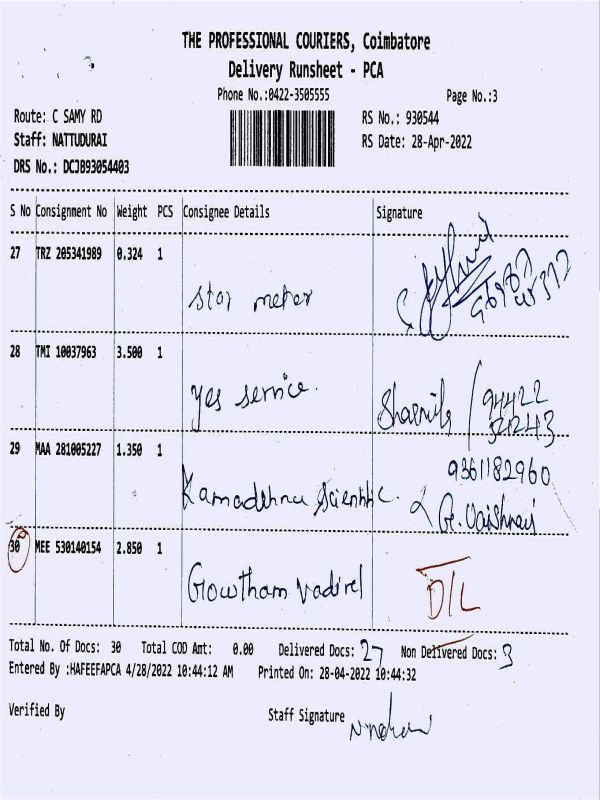 THE PROFESSIONAL COURIERS, Coimbatore
Delivery Runsheet - PCA
Phone No.:0422-3505555
Page No.:3
Route: C SAMY RD
RS No.: 930544
Staff: NATTUDURAI
RS Date: 28-Apr-2022
DRS No.: DCJ893054403
S No Consignment No Weight PCS Consignee Details Signature
27 TRZ 205341989 0.324 1
star meter
28 TMI 10037963 3.500 1
yes service.
94422
29 MAA 281005227 1.350 1
9361182960
Kamadehnu Scientific.
G. Vaishnavi
30 MEE 530140154 2.850 1
Gowtham Vadivel
D/L
Total No. Of Docs: 30 Total COD Amt: 0.00 Delivered Docs: 27 Non Delivered Docs: 3
Entered By :HAFEEFAPCA 4/28/2022 10:44:12 AM Printed On: 28-04-2022 10:44:32
Verified By Staff Signature